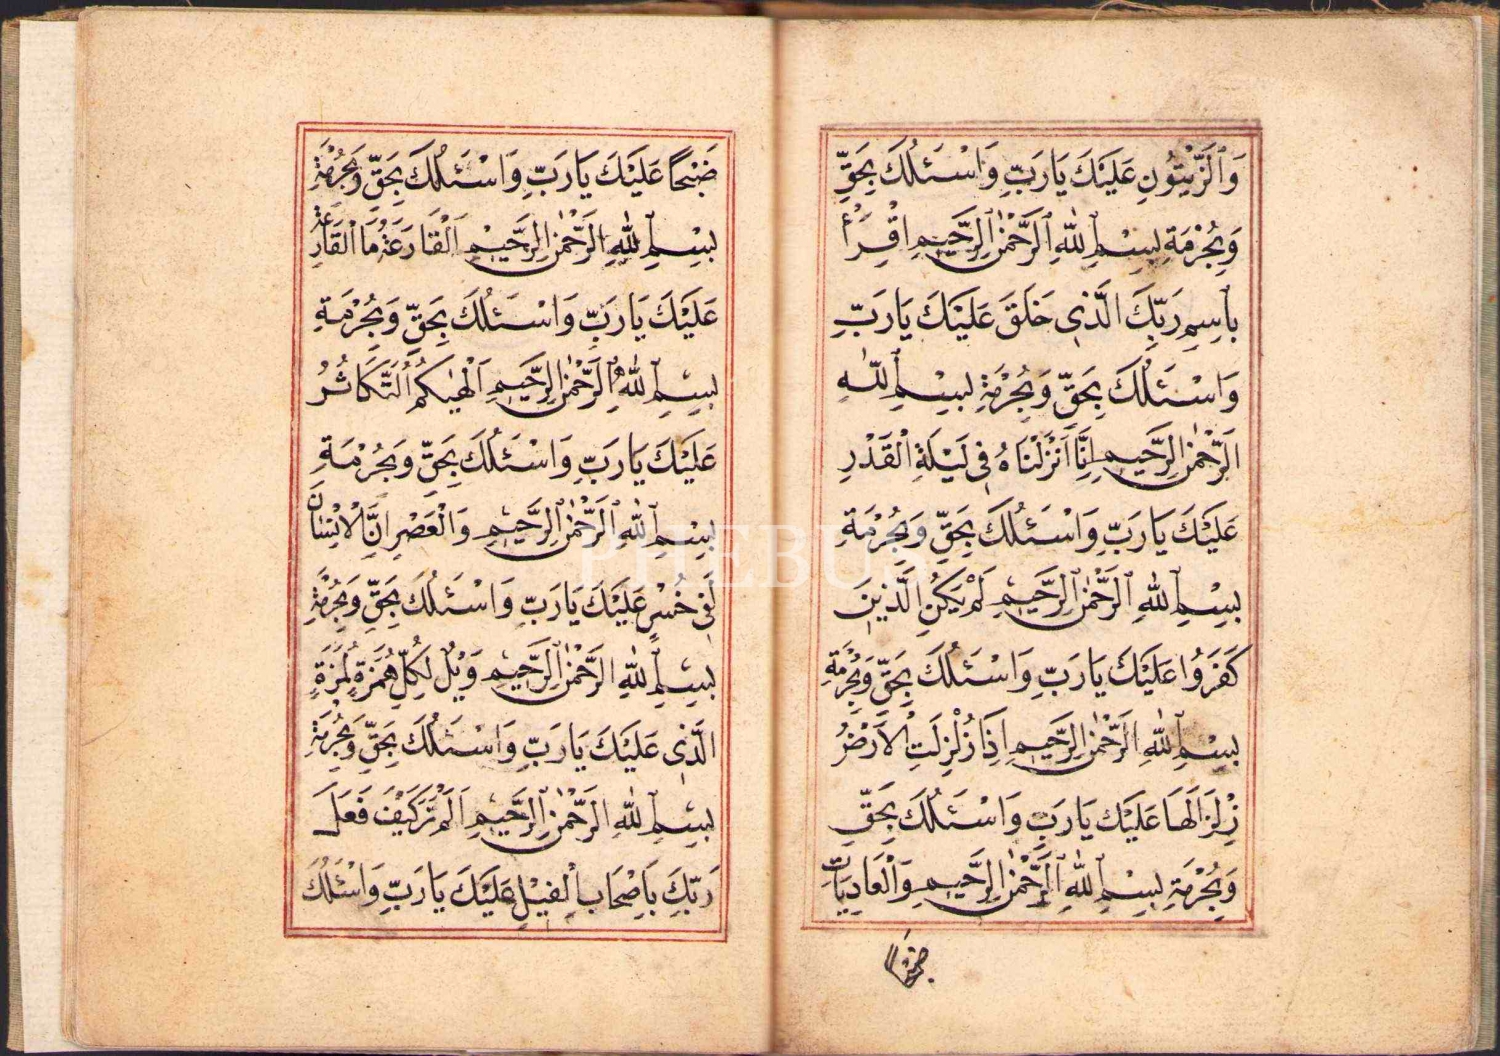 وَالزَّيْتُونِ عَلَيْكَ يَارَبِّ وَاَسْئَلُكَ بِحَقِّ
وَبِحُرْمَةِ بِسْمِ اللهِ الرَّحْمٰنِ الرَّحِيمِ اِقْرَأْ
بِاسِمِ رَبِّكَ الَّذِي خَلَقَ عَلَيْكَ يَارَبِّ
وَاَسْئَلُكَ بِحَقِّ وَبِحُرْمَةِ بِسْمِ اللهِ
الرَّحْمٰنِ الرَّحِيمِ اِنَّا اَنْزَلْنَاهُ فِي لَيْلَةِ الْقَدْرِ
عَلَيْكَ يَارَبِّ وَاَسْئَلُكَ بِحَقِّ وَبِحُرْمَةِ
بِسْمِ اللهِ الرَّحْمٰنِ الرَّحِيمِ لَمْ يَكُنِ الَّذِينَ
كَفَرُوا عَلَيْكَ يَارَبِّ وَاَسْئَلُكَ بِحَقِّ وَبِحُرْمَةِ
بِسْمِ اللهِ الرَّحْمٰنِ الرَّحِيمِ اِذَا زُلْزِلَتِ الْاَرْضُ
زِلْزَالَهَا عَلَيْكَ يَارَبِّ وَاَسْئَلُكَ بِحَقِّ
وَبِحُرْمَةِ بِسْمِ اللهِ الرَّحْمٰنِ الرَّحِيمِ وَالْعَادِيَاتِ
ضَبْحًا
ضَبْحًا عَلَيْكَ يَارَبِّ وَاَسْئَلُكَ بِحَقِّ وَبِحُرْمَةِ
بِسْمِ اللهِ الرَّحْمٰنِ الرَّحِيمِ اَلْقَارِعَةُ مَا الْقَارِعَةُ
عَلَيْكَ يَارَبِّ وَاَسْئَلُكَ بِحَقِّ وَبِحُرْمَةِ
بِسْمِ اللهِ الرَّحْمٰنِ الرَّحِيمِ اَلْهٰيكُمُ التَّكَاثُرُ
عَلَيْكَ يَارَبِّ وَاَسْئَلُكَ بِحَقِّ وَبِحُرْمَةِ
بِسْمِ اللهِ الرَّحْمٰنِ الرَّحِيمِ وَالْعَصْرِ اِنَّ الْاِنْسَانَ
لَفِي خُسْرٍ عَلَيْكَ يَارَبِّ وَاَسْئَلُكَ بِحَقِّ وَبِحُرْمَةِ
بِسْمِ اللهِ الرَّحْمٰنِ الرَّحِيمِ وَيْلٌ لِكُلِّ هُمَزَةٍ لُمَزَةٍ
الَّذِي عَلَيْكَ يَارَبِّ وَاَسْئَلُكَ بِحَقِّ وَبِحُرْمَةِ
بِسْمِ اللهِ الرَّحْمٰنِ الرَّحِيمِ اَلَمْ تَرَ كَيْفَ فَعَلَ
رَبُّكَ بِاَصْحَابِ الْفِيلِ عَلَيْكَ يَارَبِّ وَاَسْئَلُكَ
PHEBUS